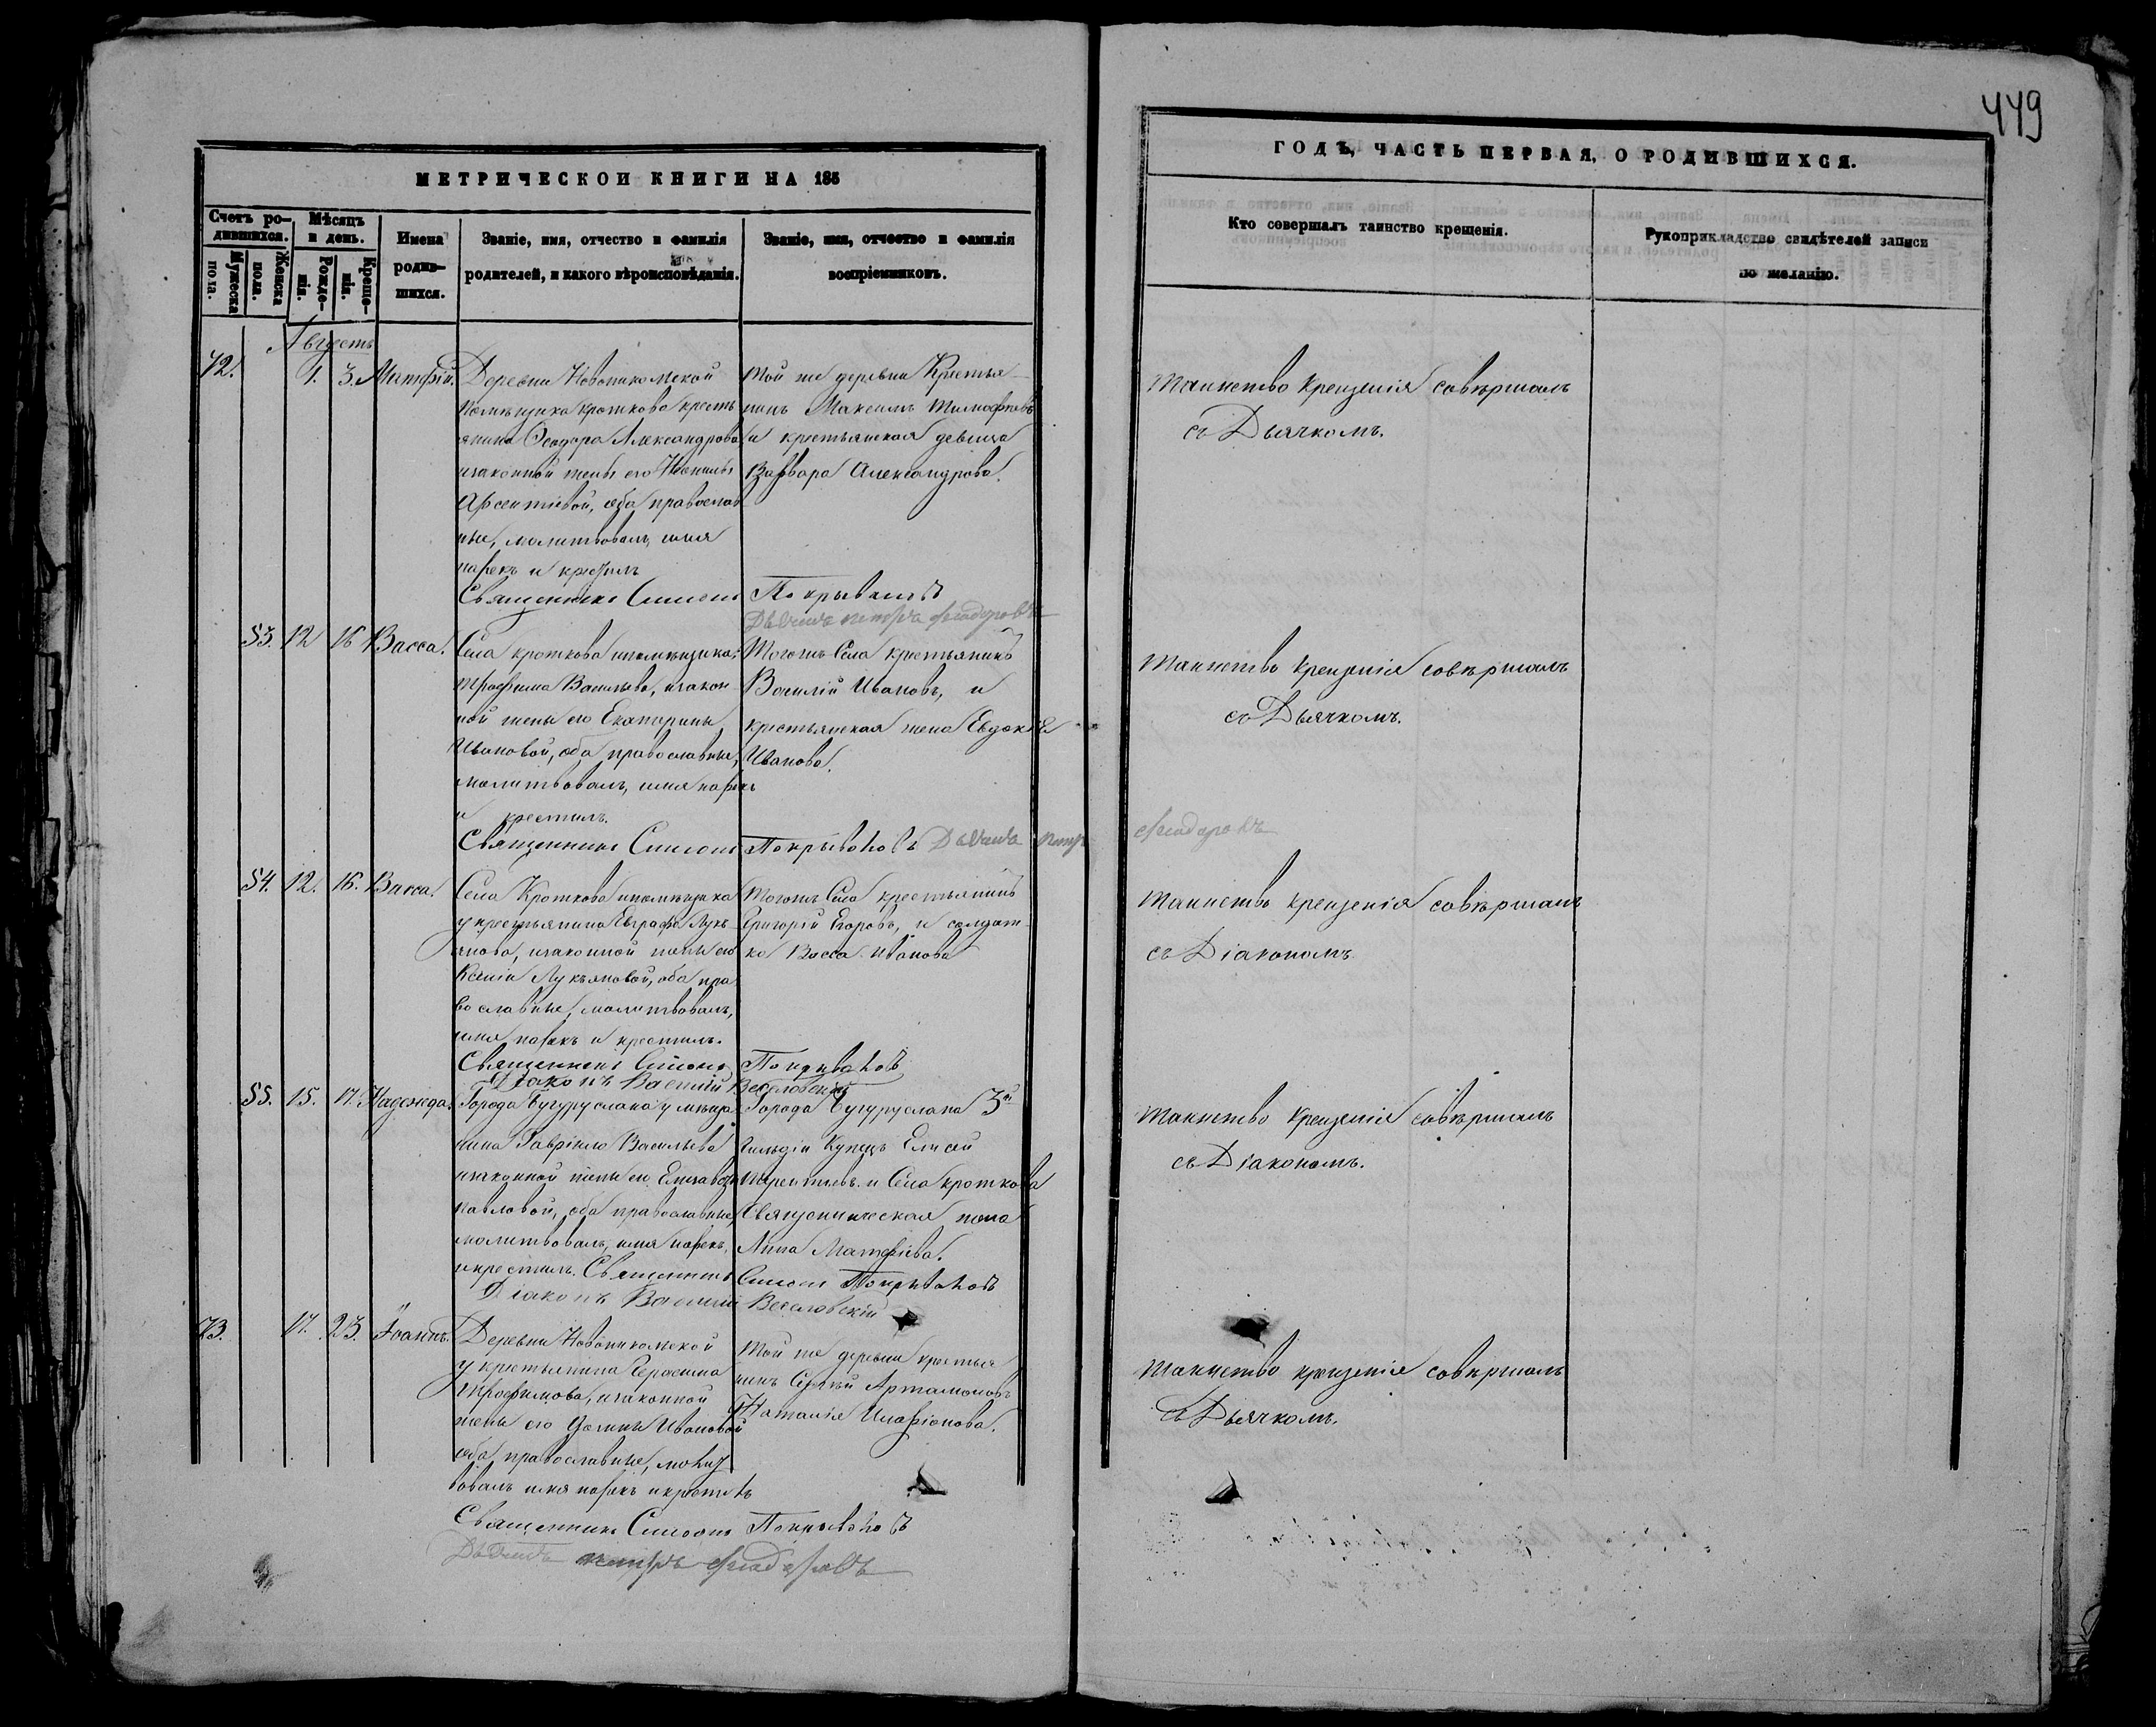 449
МЕТРИЧЕСКОИ КНИГИ НА 185
ГОДЪ, ЧАСТЬ ПЕРВАЯ, О РОДИВШИХСЯ.
Счетъ ро-
дившихся.
Мужеска
пола.
Женска
пола.
Мѣсяцъ
и день.
Рожде-
нія.
Креще-
нія.
Имена
родив-
шихся.
Званіе, имя, отчество и фамилія
родителей, и какого вѣроисповѣданія.
Званіе, имя, отчество и фамилія
воспріемниковъ.
Кто совершалъ таинство крещенія.
Рукоприкладство свидѣтелей записи
по желанію.
Августъ
72. 1. 3. Матфій.
Деревни Новоникольской
помѣщика кроткова кресть
янина Ѳеодора Александрова
изаконной жены его
Арсентіевой, оба православ
ные, молитвовалъ, имя
нарекъ и крестилъ
Священникъ Симеонъ Покрываловъ
Дьячекъ петръ феадаровъ
той же деревни Крестья
нинъ Максимъ Тимофѣевъ
и крестьянская девица
Варвара Александрова.
Таинство Крещенія совѣршалъ
съ Дьячкомъ.
53. 12 16 Васса.
Села кроткова ипомѣщика
трофима Васильева, изакон
ной жены его Екатерины
Ивановой, оба православные,
молитвовалъ, имя нарекъ
и крестилъ.
Священникъ Симеонъ Покрываловъ Дьячекъ петръ феадаровъ
Тогожъ Села крестьянинъ
Василій Ивановъ, и
крестьянская жена Евдокія
Иванова.
Таинство Крещенія совѣршалъ
со Дьячкомъ.
54. 12. 16. Васса.
Села Кроткова ипомѣщика
у крестьянина Евграфа Лукь
янова, изаконной жены его
Ксеніи Лукьяновой, оба пра
вославные, молитвовалъ,
имя нарекъ и крестилъ.
Священникъ Симеонъ Покрываловъ
Діаконъ Василій Веселовскій
Тогожъ Села крестьянинъ
Григорій Егоровъ, и солдат
ка Васса Иванова
Таинство крещенія совѣршалъ
съ Діакономъ
55. 15. 17. Надежда.
Города Бугуруслана у мѣща
нина Гавріила Васильева
изаконной жены его Елизаветы
Павловой, оба православные,
молитвовалъ, имя нарекъ,
икрестилъ. Священникъ Симеон Покрываловъ
Діаконъ Василій Веселовскій
Города Бугуруслана 3й
Гильдіи Купецъ Елисей
и Села кроткова
Священническая жена
Анна Матфіева.
Таинство Крещенія совѣршалъ
съ Діакономъ.
73. 17. 23. Іоаннъ.
Деревни Новоникольской
у крестьянина Герасима
трофимова, изаконной
жены его Ивановой
оба православные, молит
вовалъ имя нарекъ икрестилъ
Священникъ Симеонъ Покрываловъ
Дьячекъ петръ феадаровъ
Той же деревни крестья
нинъ Сергѣй Артамоновъ
и Наталія Иларіонова.
Таинство крещенія совѣршалъ
съ Дьячкомъ.